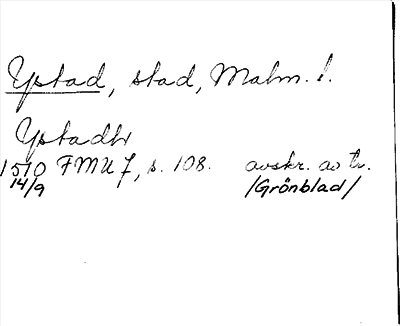 Ystad, stad, Malm. l.
Ystadh
1510 FMU 7, s. 108. avskr. av tr.
14/9 /Grönblad/